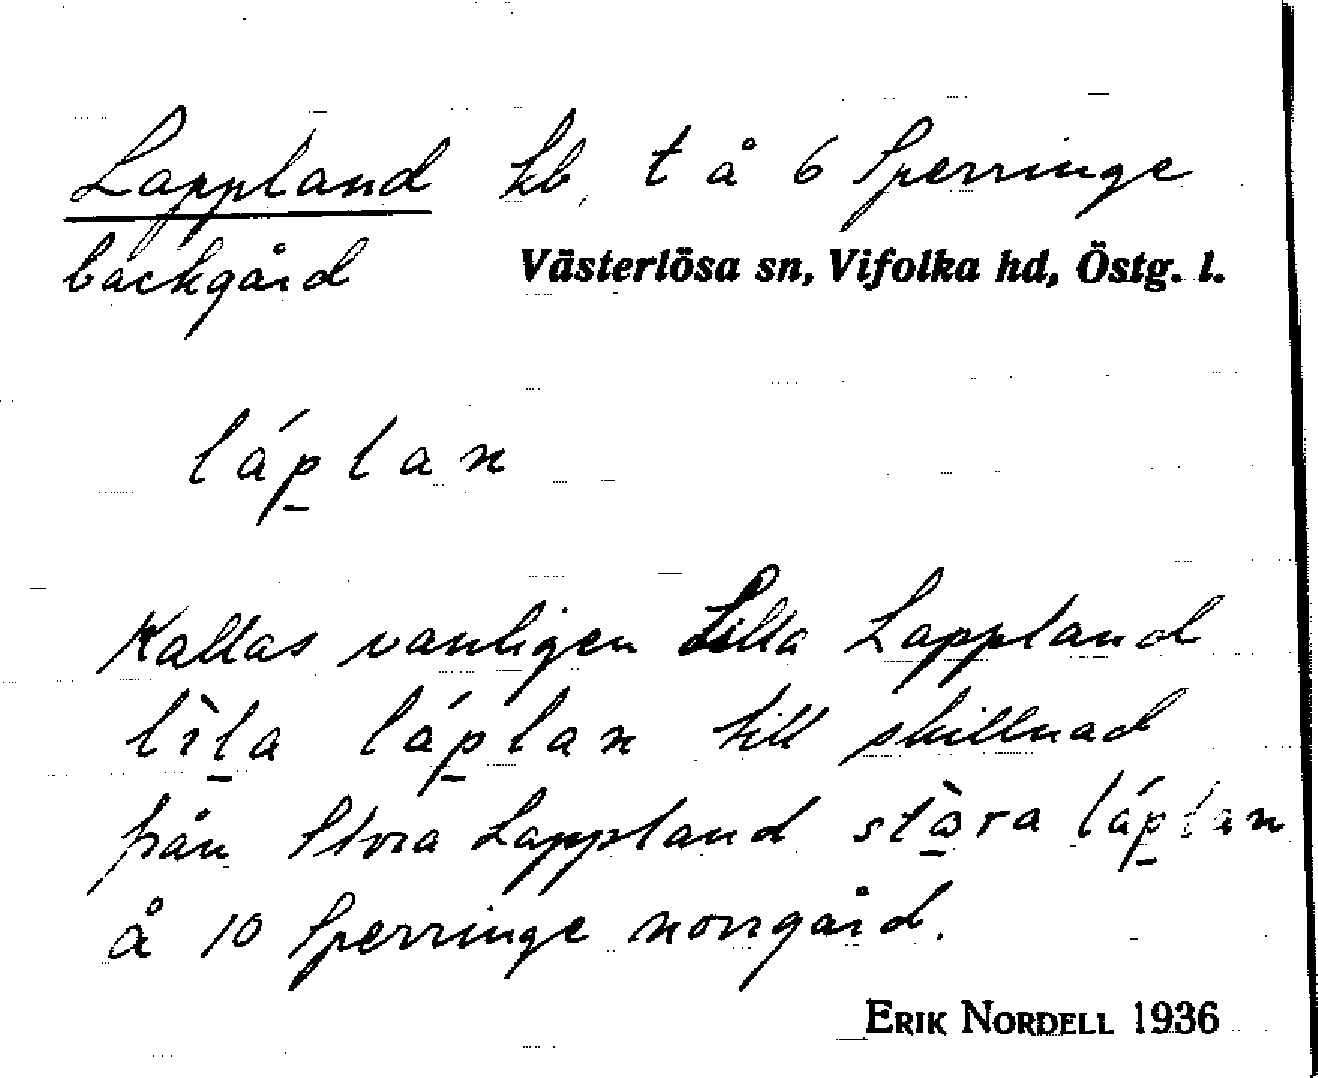 Lappland hb, t å 6 Sperringe
backgård Västerlösa sn, Vifolka hd, Östg. l.
láp̲lan
Kallas vanligen Lilla Lappland
lìl̲a láp̲lan till skillnad
från Stora Lappland stò̲ra láp̲lan
å 10 Sperringe norrgård.
ERIK NORDELL 1936